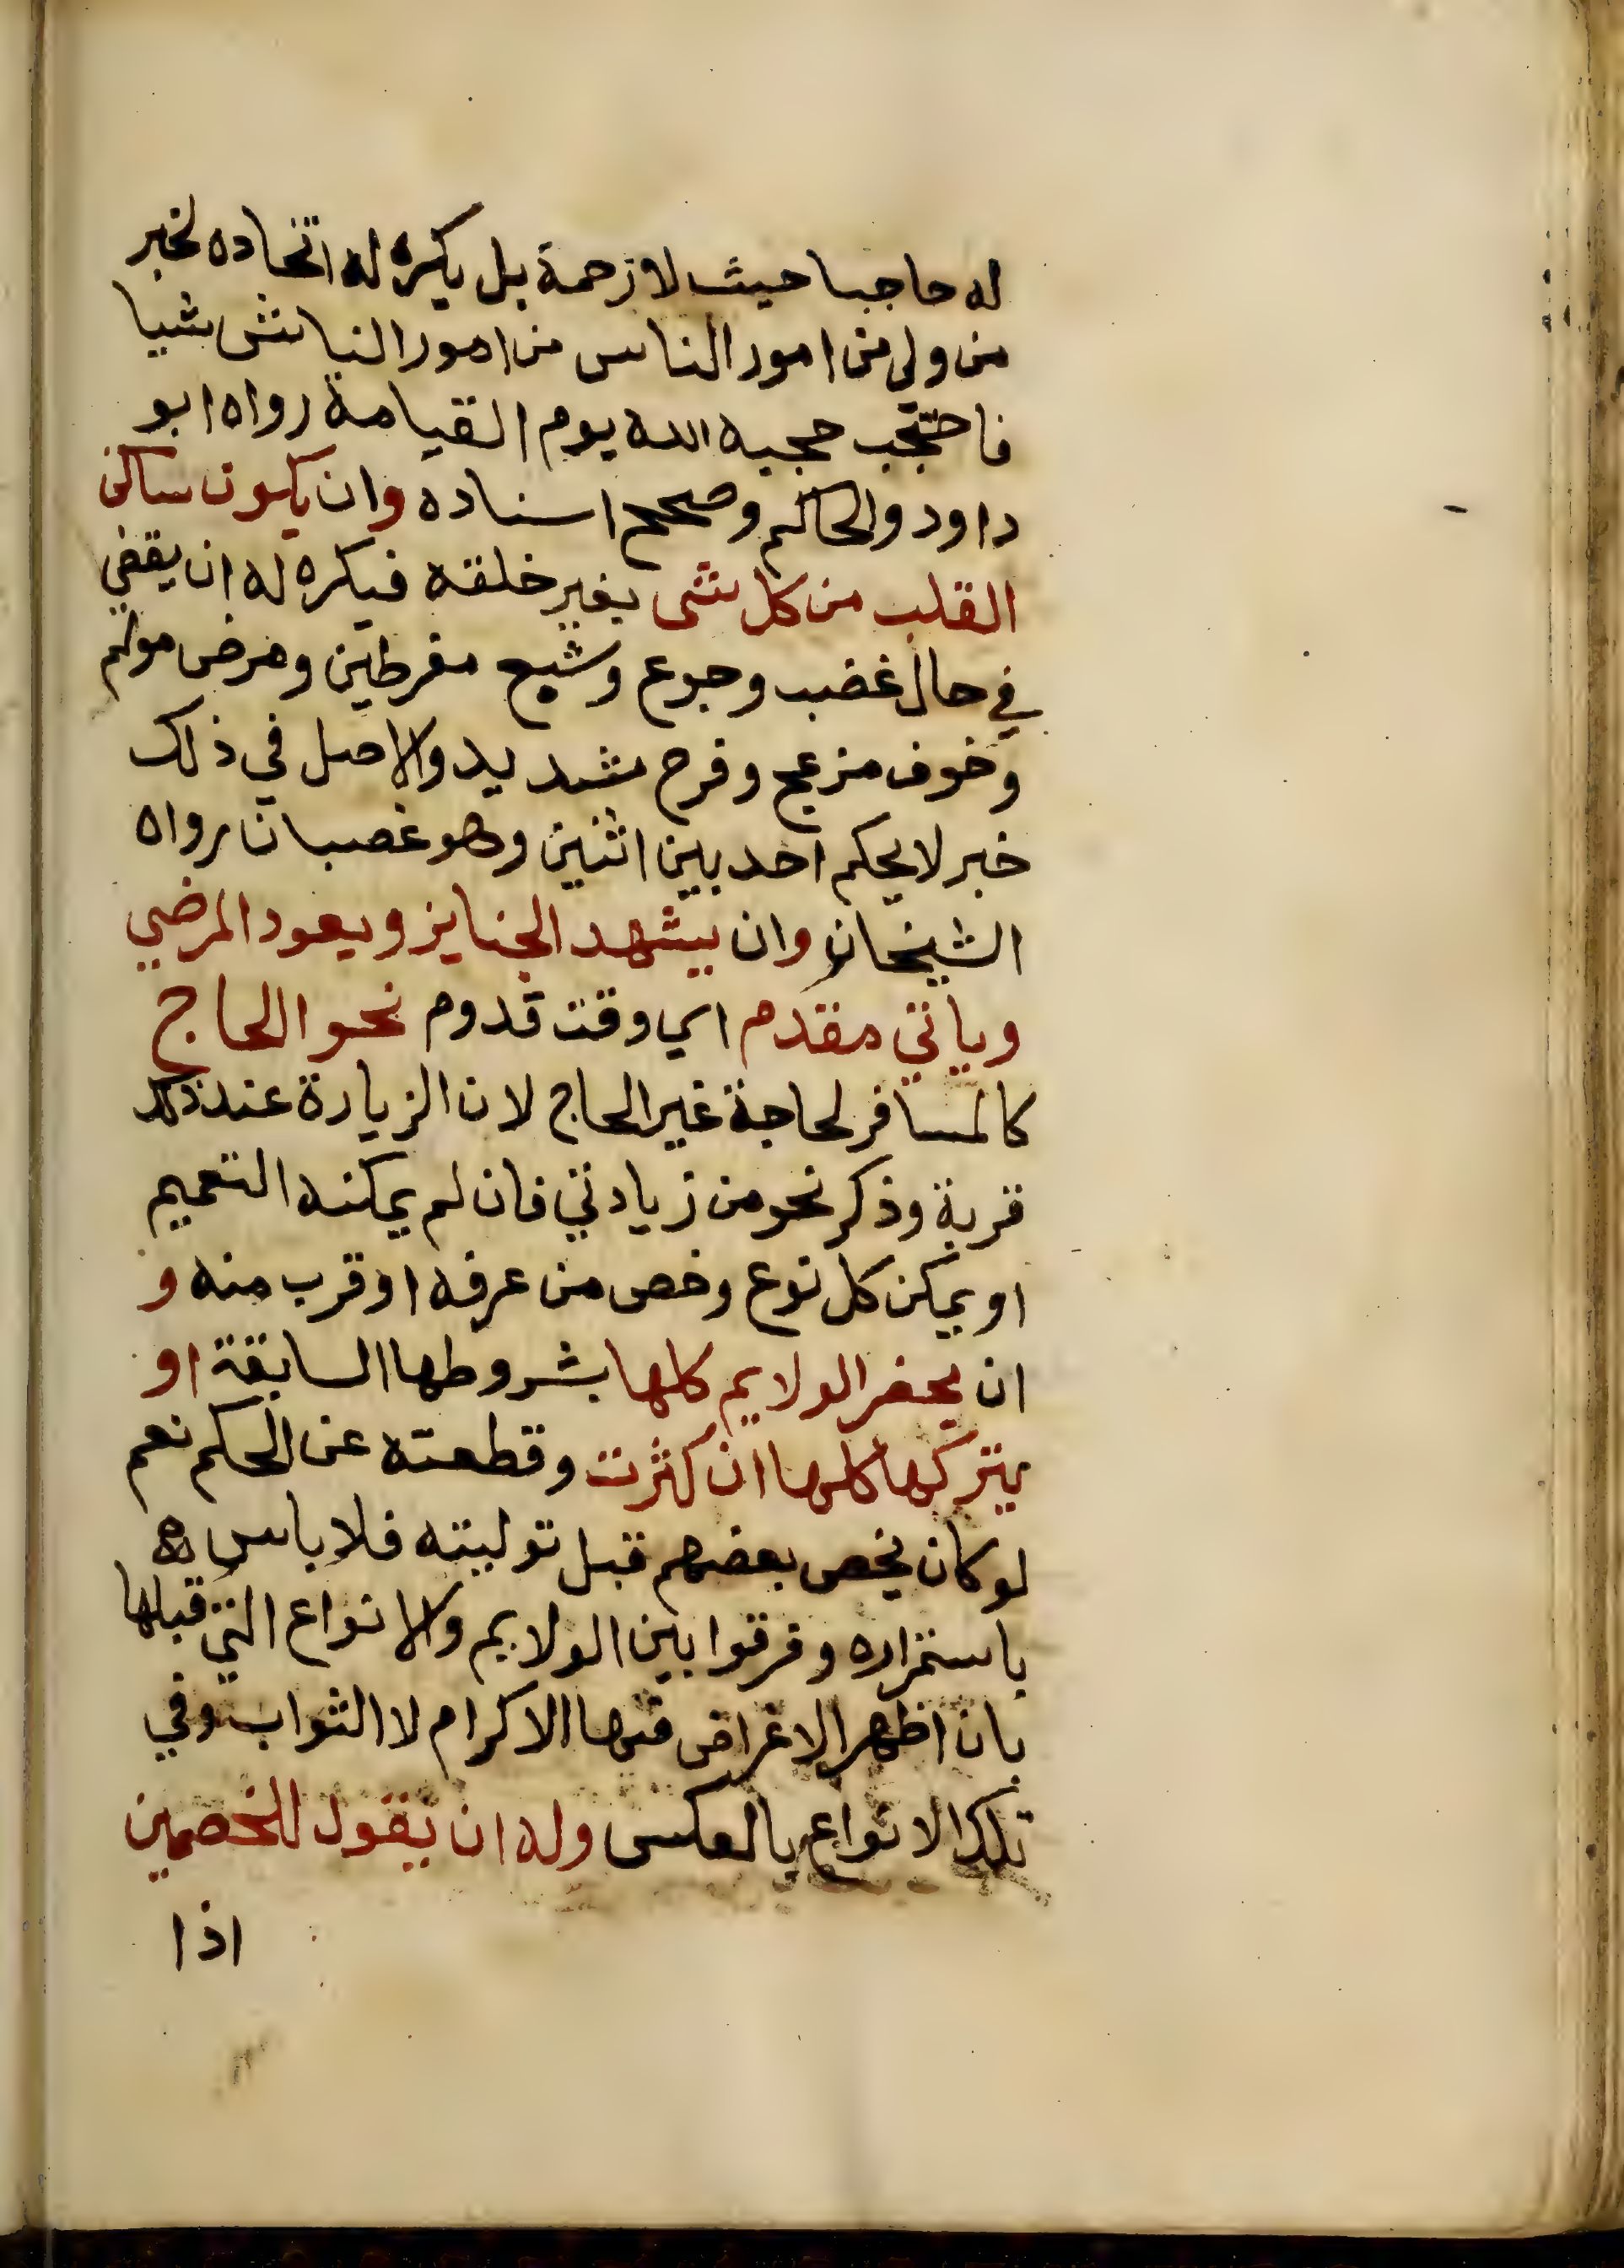 له حاجبا حيث لا زحمة بل يكره له اتخاده لخبر
من ولي من امور الناس من امور الناس شيا
فاحتجب حجبه الله يوم القيامة رواه ابو
داود والحاكم وصحح اسناده وان يكون ساكن
القلب من كل شى بغير خلقه فيكره له ان يقضي
في حال غضب وجوع وشبع مفرطين ومرض مولم
وخوف مزعج وفرح شديد والاصل في ذلك
خبر لا يحكم احد بين اثنين وهو غصبان رواه
الشيخان وان يشهد الجنايز ويعود المرضي
وياتي مقدم اي وقت قدوم نحو الحاج
كالمسافر لحاجة غير الحاج لان الزيارة عند ذلك
قربة وذكر نحو من زيادتي فان لم يمكنه التعميم
او يمكن كل نوع وخص من عرفه او قرب منه و
ان يحضر الولايم كلها بشروطها السابقة او
يتركها كلها ان كثرت وقطعته عن الحكم نعم
لو كان يخص بعضهم قبل توليته فلا باس هه
باستمراره وفرقوا بين الولايم والانواع التي قبلها
بان اظهر الاغراض فيها الاكرام لا الثواب وفي
تلك الانواع بالعكس وله ان يقول للخصمين
اذا